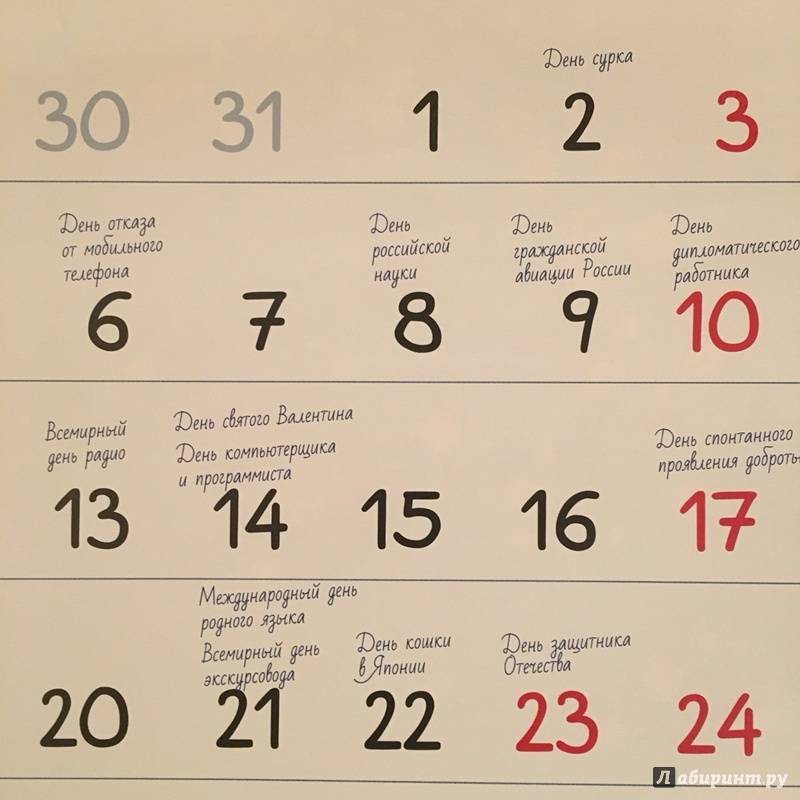 День сурка
30 31 1 2 3
День отказа
от мобильного
телефона
День
российской
науки
День
гражданской
авиации России
День
дипломатического
работника
6 7 8 9 10
Всемирный
день радио
День святого Валентина
День компьютерщика
и программиста
День спонтанного
проявления доброты
13 14 15 16 17
Международный день
родного языка
Всемирный день
экскурсовода
День кошки
в Японии
День защитника
Отечества
20 21 22 23 24
Лабиринт.ру